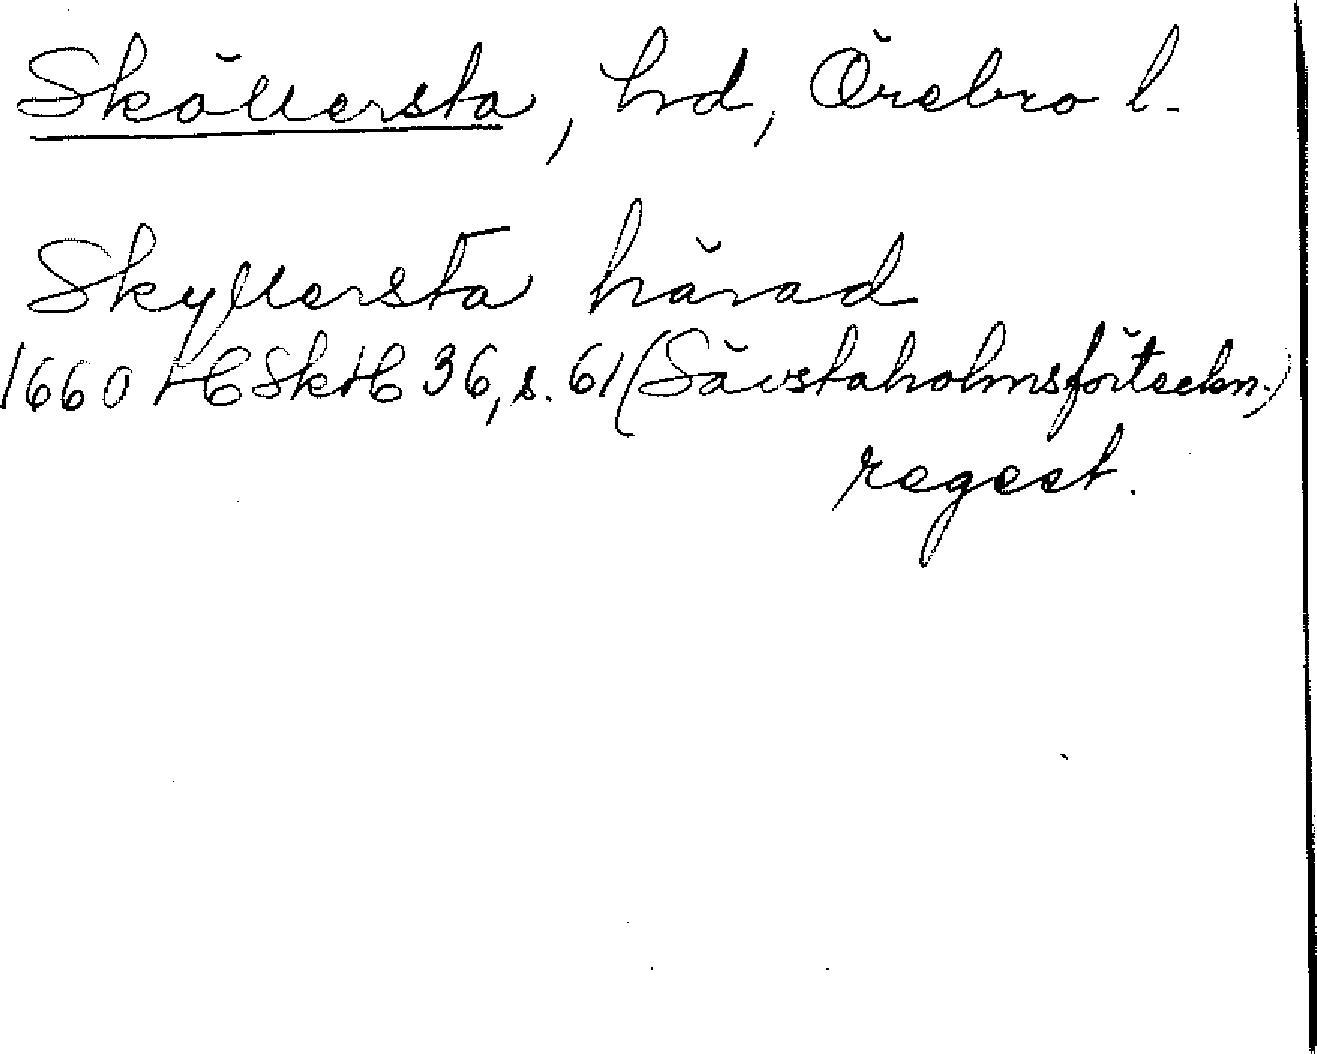 Sköllersta, hd, Örebro l.
Skyllersta härad
1660 HSH 36, s. 61 (Sävstaholmsförteckn.)
regest.